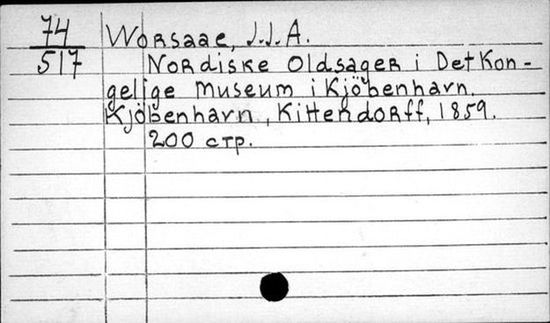 74 Worsaae, J.J.A.
517 Nordiske Oldsager i Det Kon-
gelige Museum i Kjöbenhavn.
Kjöbenhavn, Kittendorff, 1859.
200 стр.